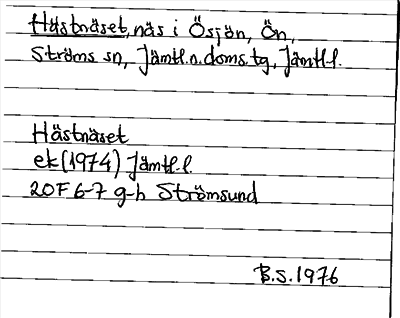 Hästnäset, näs i Ösjön, Ön,
Ströms sn, Jämtl.n.doms.tg, Jämtl.l.
Hästnäset
ek (1974) Jämtl.l.
20F 6-7 g-h Strömsund
B.S. 1976